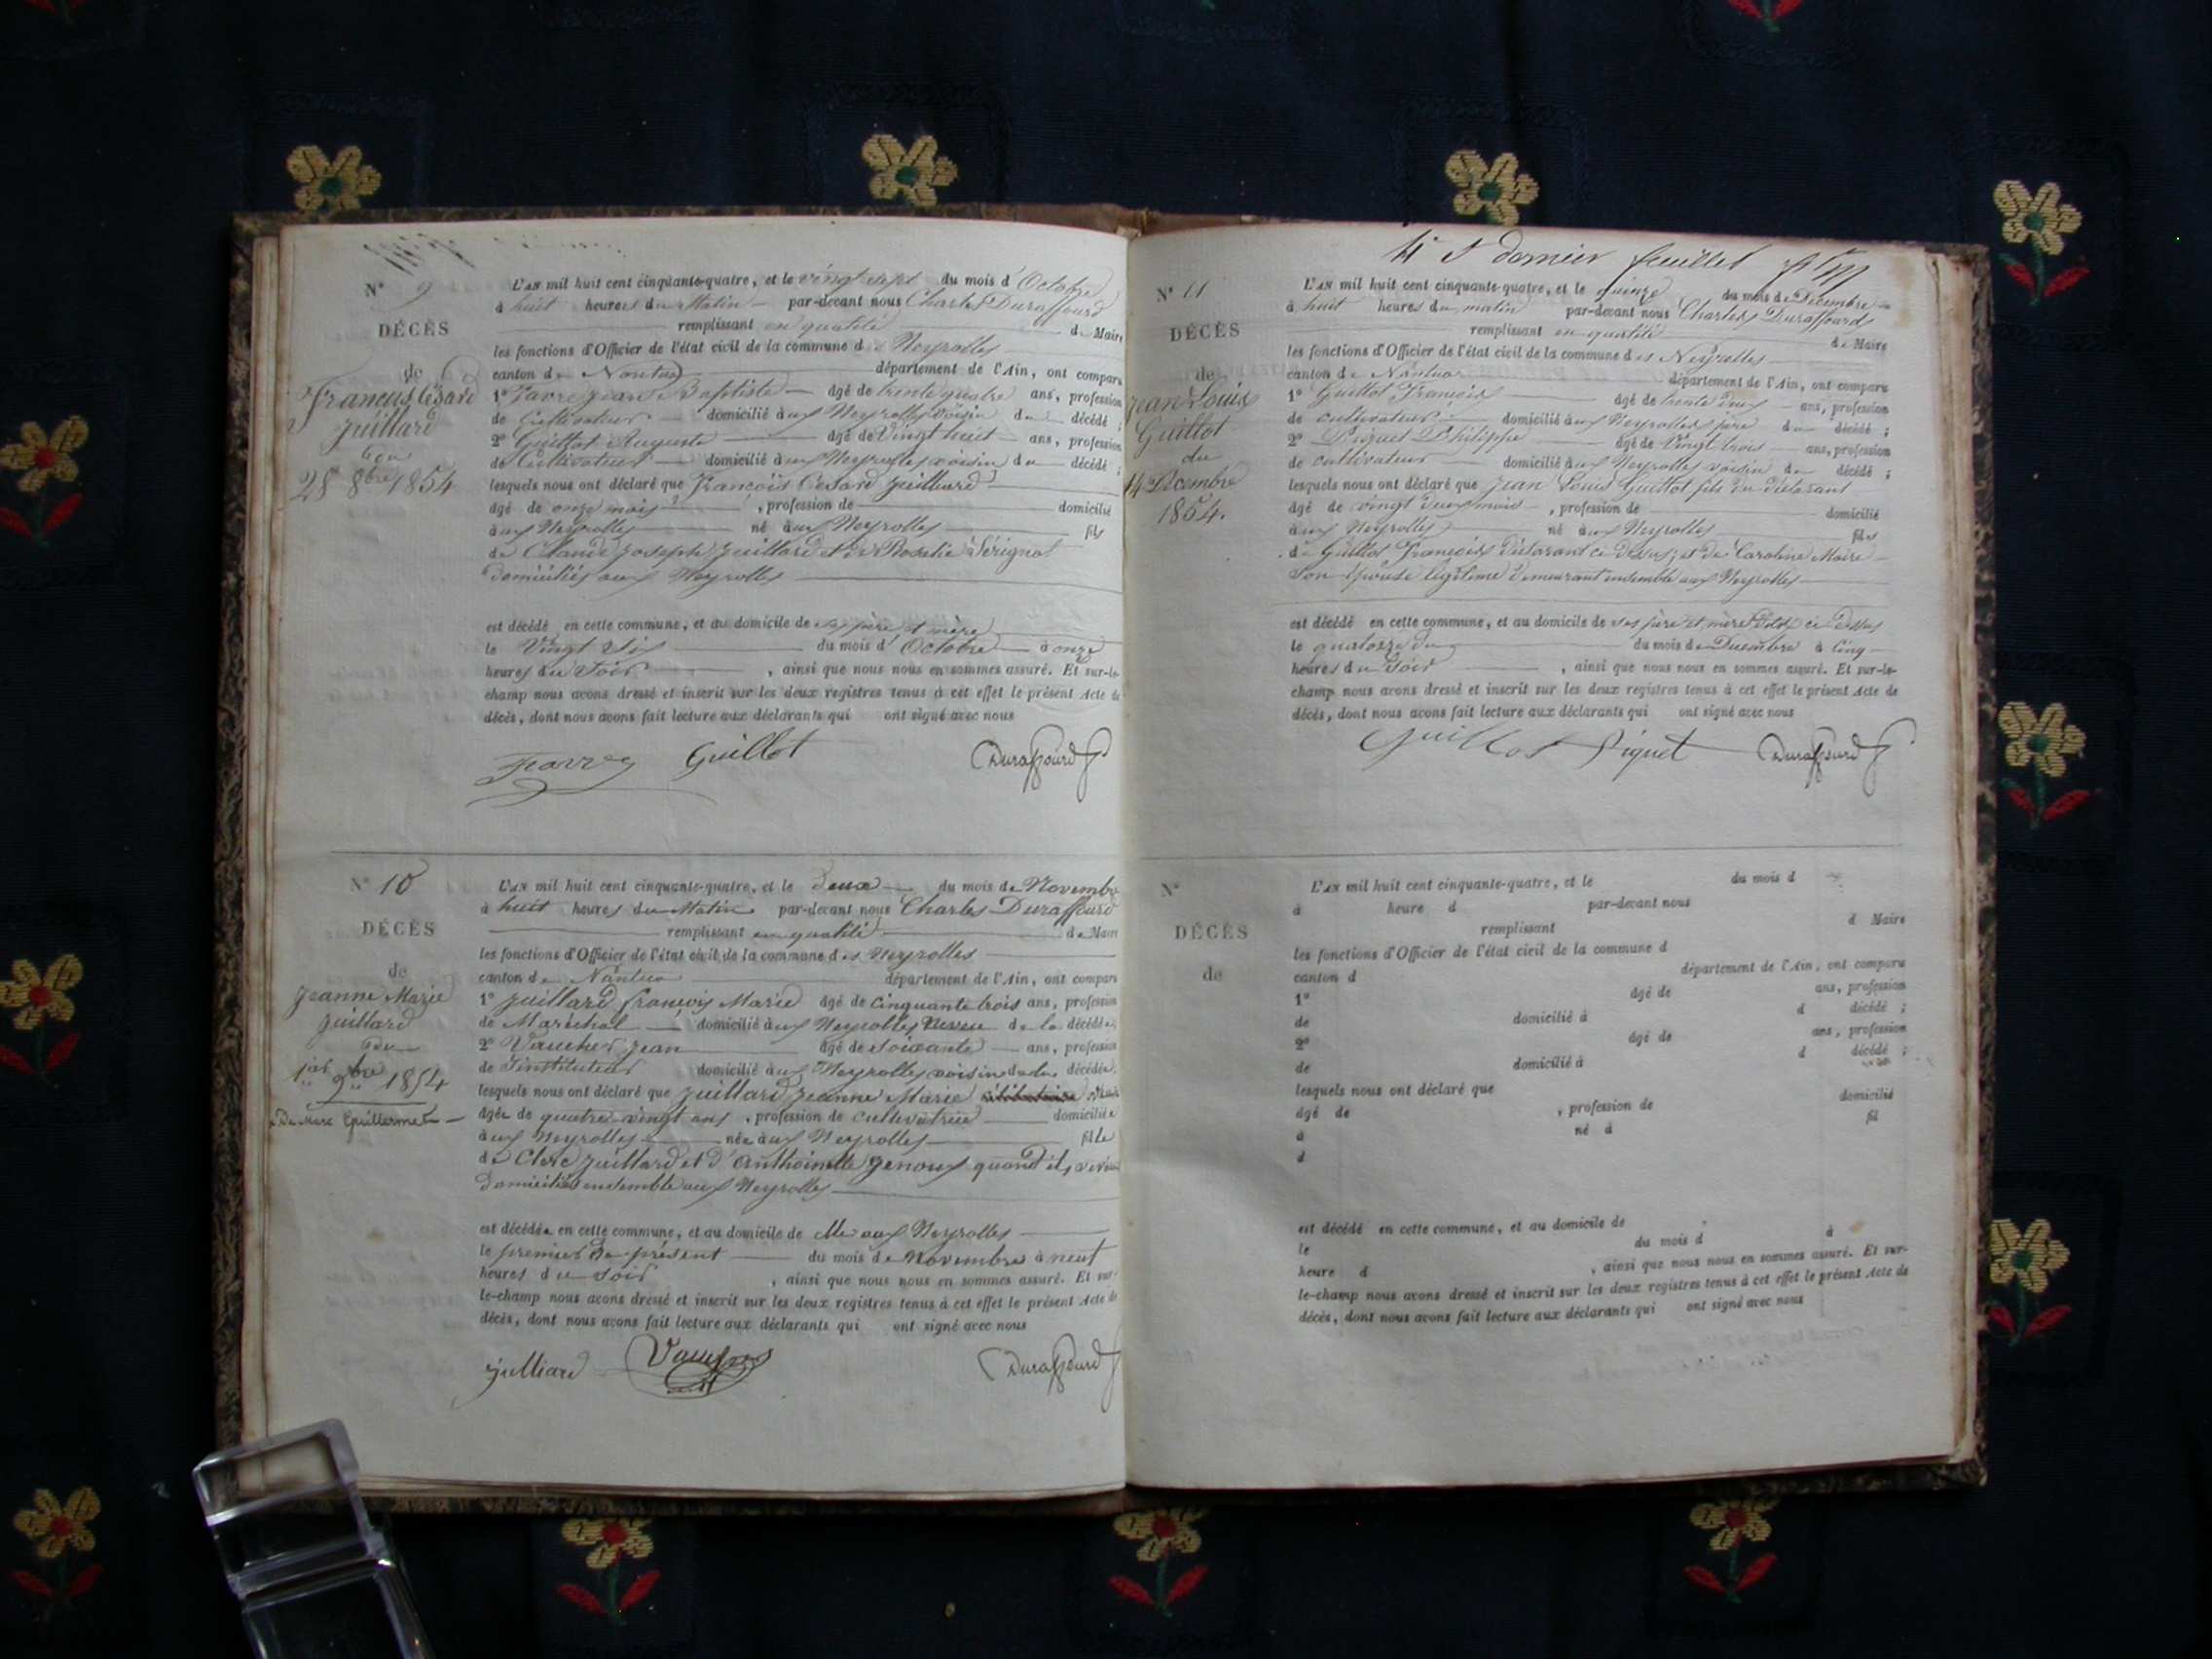 N° 9
DÉCÈS
de
François Césard
Juillard
du
28 8bre 1854
L'AN mil huit cent cinquante-quatre, et le vingt sept du mois d'Octobre
à huit heures du Matin par-devant nous Charles Duraffourd
remplissant en qualité de Maire
les fonctions d'Officier de l'état civil de la commune des Neyrolles
canton de Nantua département de l'Ain, ont comparu
1° Favre Jean Baptiste âgé de trente quatre ans, profession
de Cultivateur domicilié aux Neyrolles voisin du décédé ;
2° Guillot Auguste âgé de Vingt huit ans, profession
de Cultivateur domicilié aux Neyrolles voisin du décédé ;
lesquels nous ont déclaré que François Césard Juillard
âgé de onze mois , profession de domicilié
aux Neyrolles né aux Neyrolles fils
de Claude Joseph Juillard et de Rosalie Sérignat
domiciliés aux Neyrolles
est décédé en cette commune, et au domicile de ses père et mère
le Vingt Six du mois d'Octobre à onze
heures du Soir , ainsi que nous nous en sommes assuré. Et sur-le-
champ nous avons dressé et inscrit sur les deux registres tenus à cet effet le présent Acte de
décès, dont nous avons fait lecture aux déclarants qui ont signé avec nous
Guillot Duraffourd
N° 10
DÉCÈS
de
Jeanne Marie
Juillard
du
1er 9bre 1854
De Marc Guillermet
L'AN mil huit cent cinquante-quatre, et le Deux du mois de Novembre
à huit heures du Matin par-devant nous Charles Duraffourd
remplissant en qualité de Maire
les fonctions d'Officier de l'état civil de la commune des Neyrolles
canton de Nantua département de l'Ain, ont comparu
1° Juillard françois Marie âgé de cinquante trois ans, profession
de Maréchal domicilié aux Neyrolles Neveu de la décédée,
2° Vaucher Jean âgé de soixante ans, profession
de Instituteur domicilié aux Neyrolles voisin de la décédée.
lesquels nous ont déclaré que Juillard Jeanne Marie
âgée de quatre vingt ans , profession de cultivatrice domiciliée
aux Neyrolles née aux Neyrolles fille
de Clerc Juillard et d'Anthoinette Genoux quand ils vivai
Domiciliés ensemble aux Neyrolles
est décédée en cette commune, et au domicile de elle aux Neyrolles
le premier du présent du mois de Novembre à neuf
heures du soir , ainsi que nous nous en sommes assuré. Et sur-
le-champ nous avons dressé et inscrit sur les deux registres tenus à cet effet le présent Acte de
décès, dont nous avons fait lecture aux déclarants qui ont signé avec nous
Julliard Vaucher Duraffourd
4e et dernier feuillet
N° 11
DÉCÈS
de
Jean Louis
Guillot
du
14 Décembre
1854.
L'AN mil huit cent cinquante-quatre, et le quinze du mois de Décembre
à huit heures du matin par-devant nous Charles Duraffourd
remplissant en qualité de Maire
les fonctions d'Officier de l'état civil de la commune des Neyrolles
canton de Nantua département de l'Ain, ont comparu
1° Guillot François âgé de trente deux ans, profession
de cultivateur domicilié aux Neyrolles père du décédé ;
2° Piquet Philippe âgé de Vingt trois ans, profession
de cultivateur domicilié aux Neyrolles voisin du décédé ;
lesquels nous ont déclaré que Jean Louis Guillot fils du déclarant
âgé de vingt deux mois , profession de domicilié
aux Neyrolles né aux Neyrolles fils
de Guillot François déclarant ci dessus, et de Caroline Moire
Son Epouse légitime demeurant ensemble aux Neyrolles
est décédé en cette commune, et au domicile de ses père et mère dits ci dessus
le quatorze du du mois de Décembre à Cinq
heures du Soir , ainsi que nous nous en sommes assuré. Et sur-le-
champ nous avons dressé et inscrit sur les deux registres tenus à cet effet le présent Acte de
décès, dont nous avons fait lecture aux déclarants qui ont signé avec nous
Guillot Piquet Duraffourd
N°
DÉCÈS
de
L'AN mil huit cent cinquante-quatre, et le du mois d
à heure d par-devant nous
remplissant d Maire
les fonctions d'Officier de l'état civil de la commune d
canton d département de l'Ain, ont comparu
1° âgé de ans, profession
de domicilié à d décédé ;
2° âgé de ans, profession
de domicilié à d décédé ;
lesquels nous ont déclaré que
âgé de , profession de domicilié
à né à fil
d
est décédé en cette commune, et au domicile de
le du mois d à
heure d , ainsi que nous nous en sommes assuré. Et sur-
le-champ nous avons dressé et inscrit sur les deux registres tenus à cet effet le présent Acte de
décès, dont nous avons fait lecture aux déclarants qui ont signé avec nous